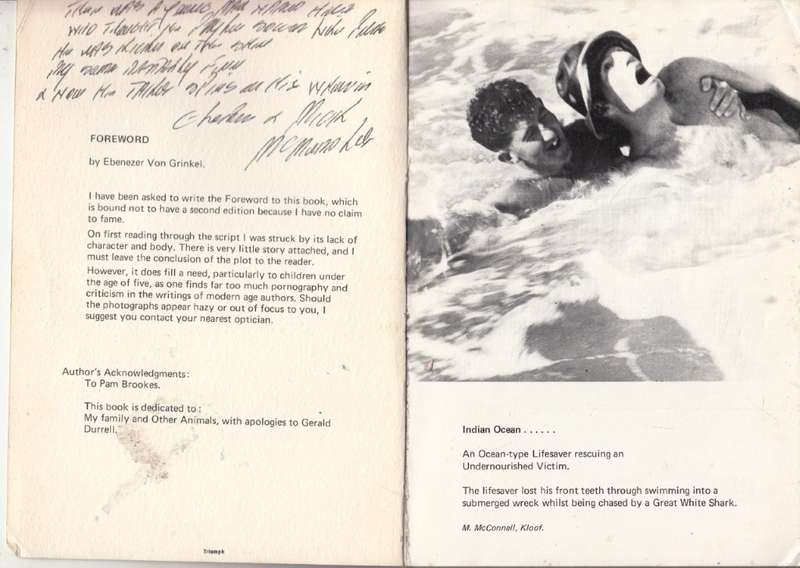 FOREWORD
by Ebenezer Von Grinkel.
I have been asked to write the Foreword to this book, which
is bound not to have a second edition because I have no claim
to fame.
On first reading through the script I was struck by its lack of
character and body. There is very little story attached, and I
must leave the conclusion of the plot to the reader.
However, it does fill a need, particularly to children under
the age of five, as one finds far too much pornography and
criticism in the writings of modern age authors. Should
the photographs appear hazy or out of focus to you, I
suggest you contact your nearest optician.
Author's Acknowledgments:
To Pam Brookes.
This book is dedicated to:
My family and Other Animals, with apologies to Gerald
Durrell.
Triumph
Indian Ocean . . . . . .
An Ocean-type Lifesaver rescuing an
Undernourished Victim.
The lifesaver lost his front teeth through swimming into a
submerged wreck whilst being chased by a Great White Shark.
M. McConnell, Kloof.